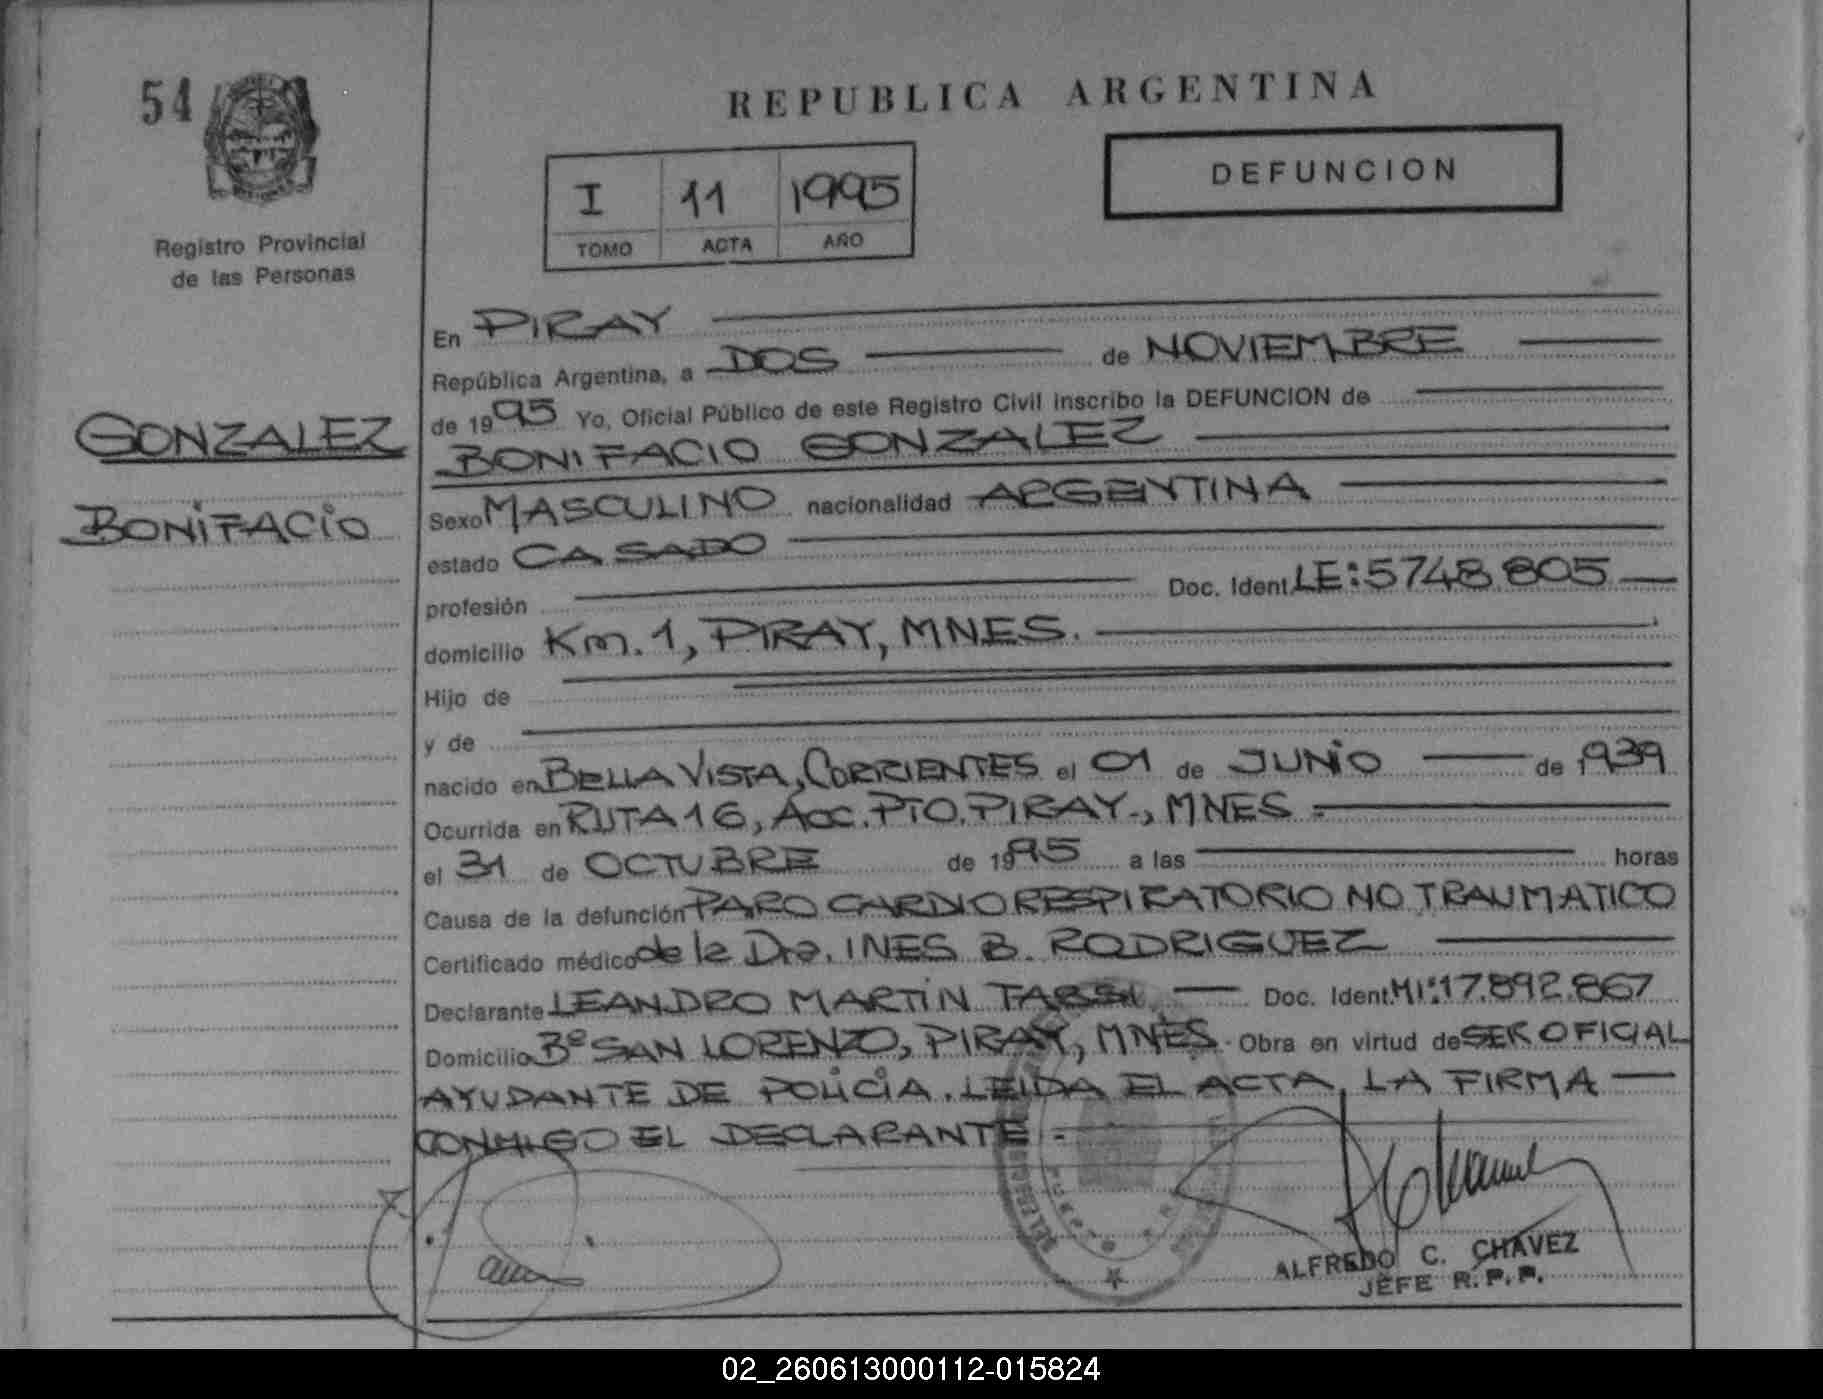 54
REPUBLICA ARGENTINA
DEFUNCION
I 11 1995
TOMO ACTA AÑO
Registro Provincial
de las Personas
GONZALEZ
BONIFACIO
En PIRAY
República Argentina, a DOS de NOVIEMBRE
de 1995 Yo, Oficial Público de este Registro Civil inscribo la DEFUNCION de
BONIFACIO GONZALEZ
Sexo MASCULINO nacionalidad ARGENTINA
estado CASADO
profesión Doc. Ident. LE:5748.805
domicilio Km. 1, PIRAY, MNES.
Hijo de
y de
nacido en BELLA VISTA, CORRIENTES el 01 de JUNIO de 1939
Ocurrida en RUTA 16, Acc. PTO. PIRAY., MNES.-
el 31 de OCTUBRE de 1995 a las horas
Causa de la defunción PARO CARDIORESPIRATORIO NO TRAUMATICO
Certificado médico de la Dra. INES B. RODRIGUEZ
Declarante LEANDRO MARTIN Doc. Ident. MI:17.892.867
Domicilio Bº SAN LORENZO, PIRAY, MNES. Obra en virtud de SER OFICIAL
AYUDANTE DE POLICIA. LEIDA EL ACTA, LA FIRMA
CONMIGO EL DECLARANTE.-
ALFREDO C. CHAVEZ
JEFE R. P. P.
02_260613000112-015824